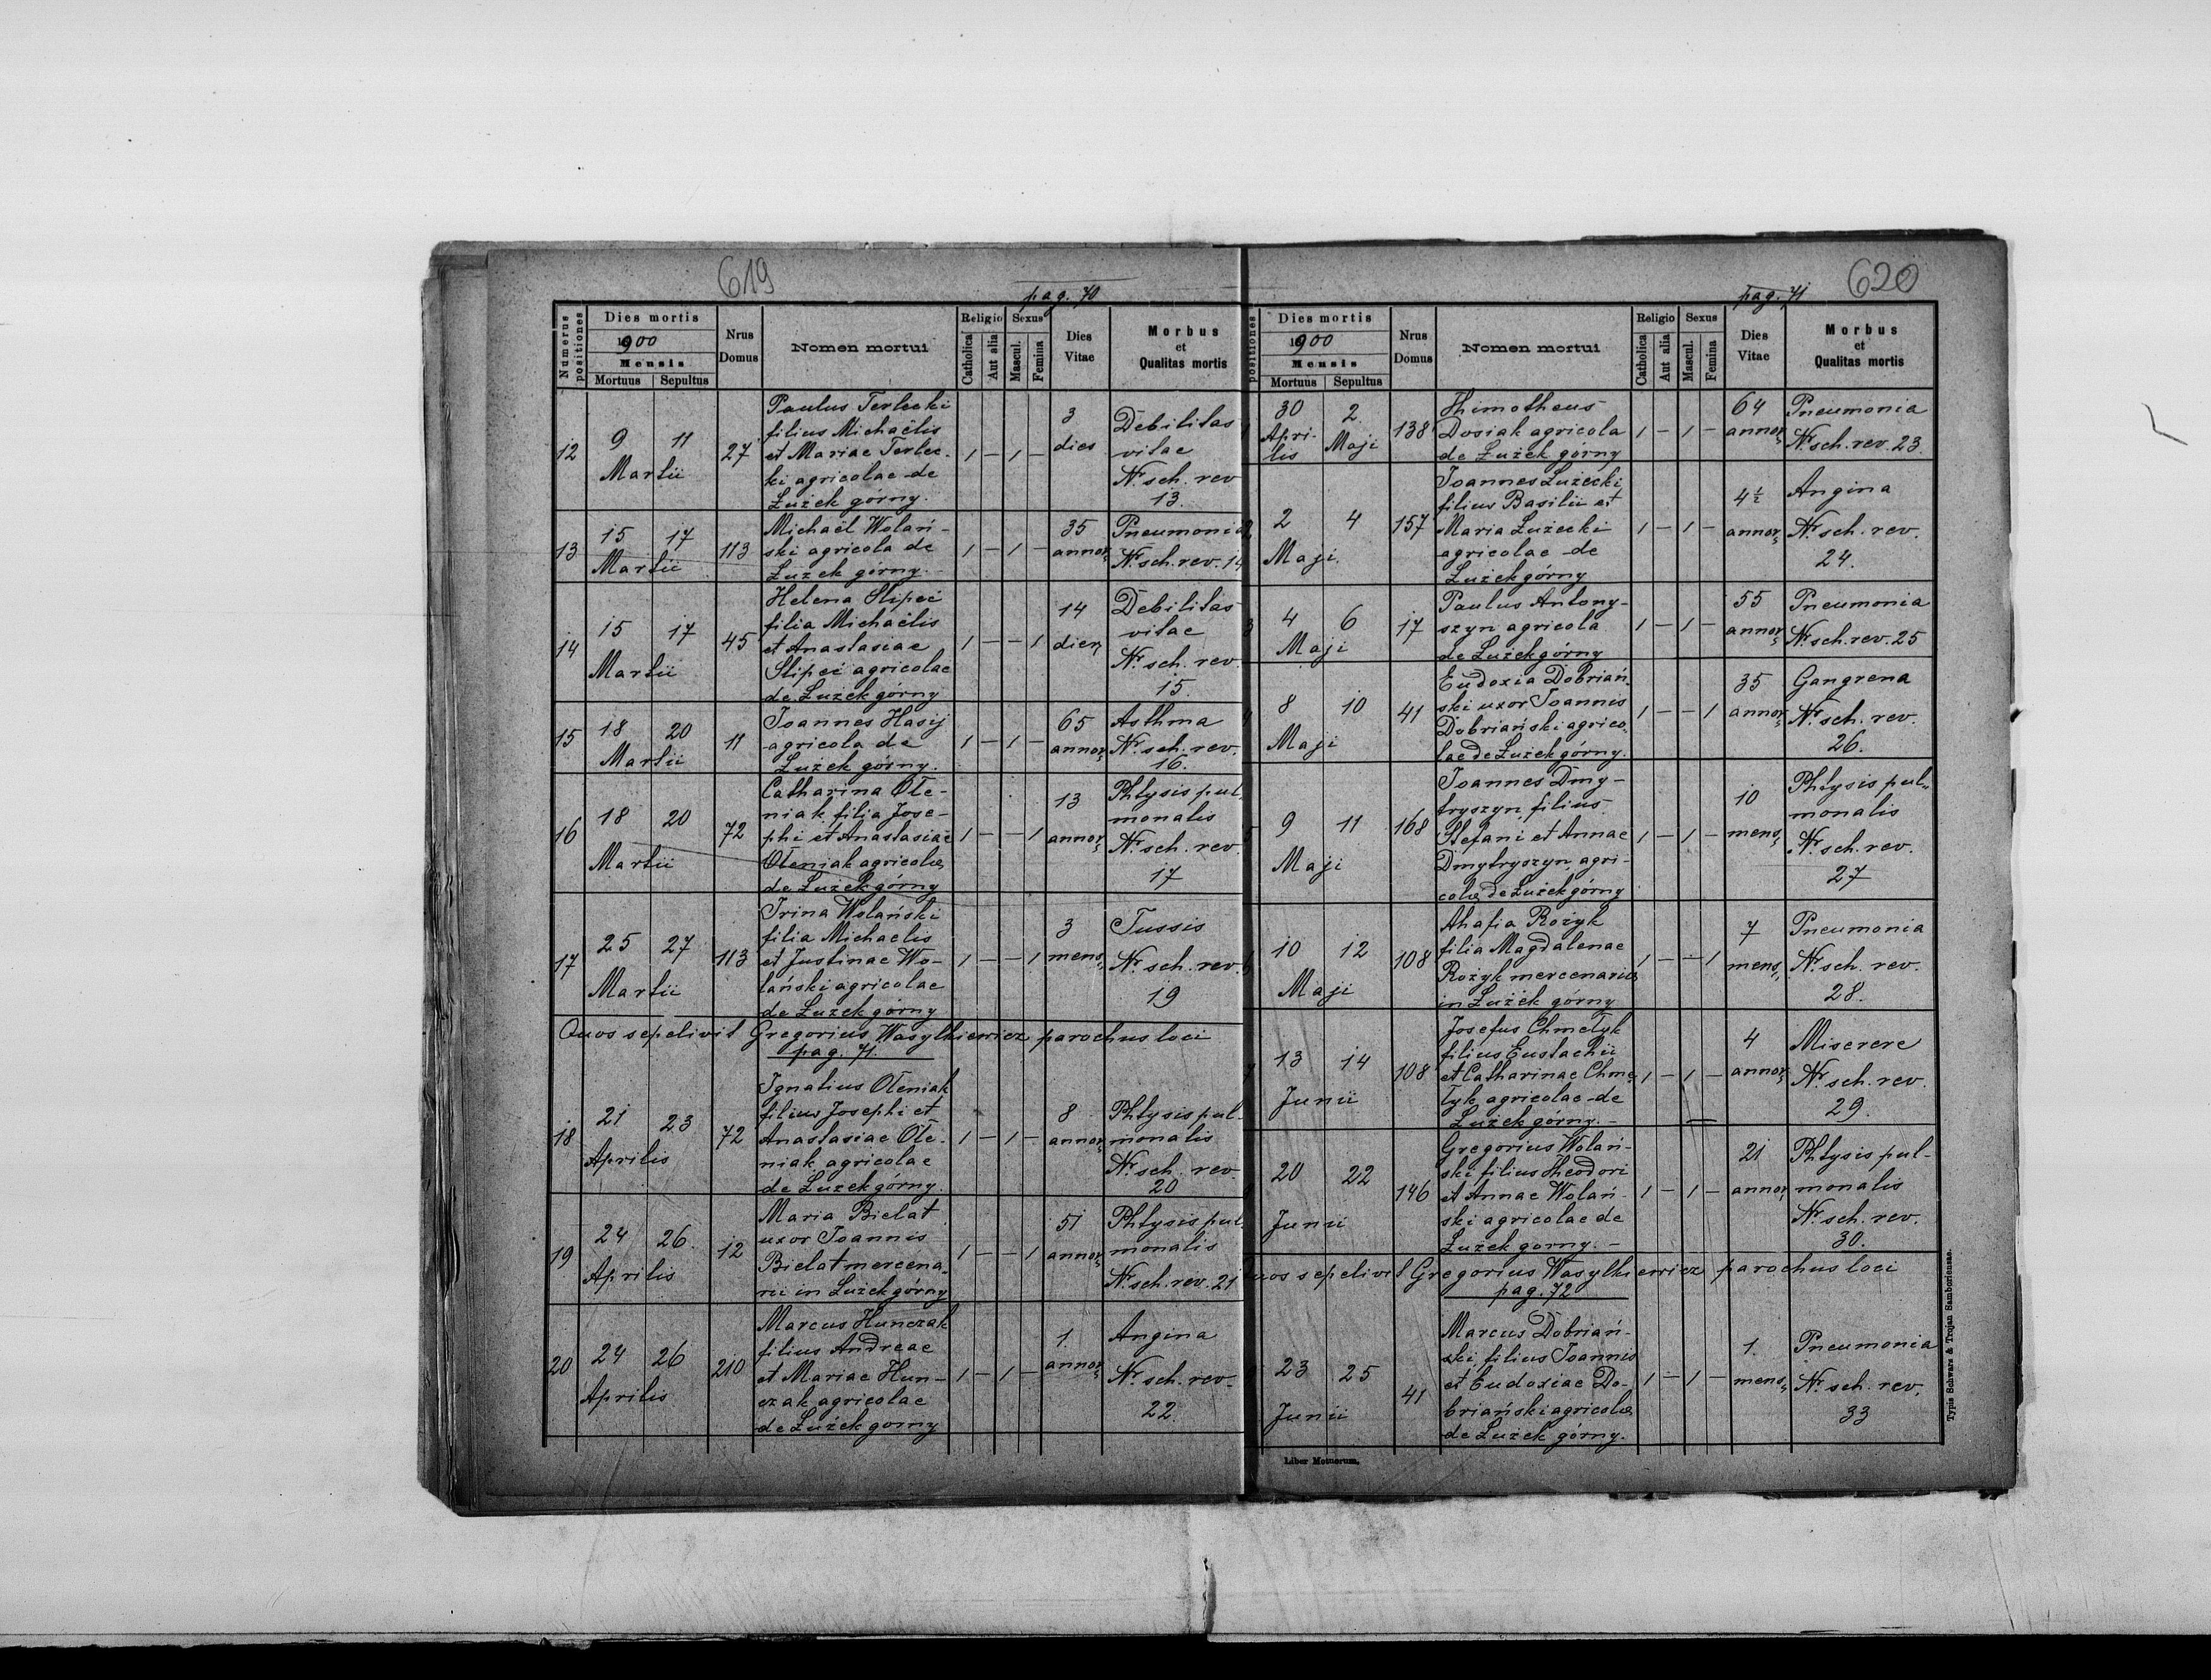 619
pag. 70
Numerus positiones
Dies mortis
1900
Mensis
Mortuus Sepultus
Nrus Domus
Nomen mortui
Religio
Catholica
Aut alia
Sexus
Mascul.
Femina
Dies Vitae
Morbus et Qualitas mortis
12 9 11 Martii 27
Paulus Terlecki
filius Michaëlis
et Mariae Terlec-
ki agricolae de
Łużek górny.
1 – 1 –
3 dies
Debilitas
vitae
Nr. sch. rev
13.
13 15 17 Martii 113
Michaël Wolań-
ski agricola de
Łużek górny.
1 – 1 –
35 annor,
Pneumonia
Nr. sch. rev. 14
14 15 17 Martii 45
Helena Slipeć
filia Michaëlis
et Anastasiae
Slipeć agricolae
de Łużek górny
1 – – 1
14 dier,
Debilitas
vitae
Nr. sch. rev.
15.
15 18 20 Martii 11
Joannes Hasij
agricola de
Łużek górny.
1 – 1 –
65 annor,
Asthma
Nr. sch. rev.
16.
16 18 20 Martii 72
Catharina Ołe-
niak filia Jose-
phi et Anastasiae
Ołeniak agricolae
de Łużek górny
1 – – 1
13 annor,
Phtysis pul-
monalis
Nr. sch. rev.
17
17 25 27 Martii 113
Irina Wolański
filia Michaelis
et Justinae Wo-
lański agricolae
de Łużek górny
1 – – 1
3 mens,
Tussis
Nr. sch. rev.
19
Quos sepelivit Gregorius Wasylkiewicz parochus loci
pag. 71.
18 21 23 Aprilis 72
Ignatius Ołeniak
filius Josephi et
Anastasiae Ołe-
niak agricolae
de Łużek górny.
1 – 1 –
8 annor,
Phtysis pul-
monalis
Nr. sch. rev.
20
19 24 26. Aprilis 12
Maria Bielat
uxor Joannis
Bielat mercena-
rii in Łużek górny
1 – – 1
51 annor,
Phtysis pul-
monalis
Nr. sch. rev. 21
20 24 26 Aprilis 210
Marcus Hunczak
filius Andreae
et Mariae Hun-
czak agricolae
de Łużek gorny
1 – 1 –
1. annor,
Angina
Nr. sch. rev.
22.
620
pag. 71
positiones
Dies mortis
1900
Mensis
Mortuus Sepultus
Nrus Domus
Nomen mortui
Religio
Catholica
Aut alia
Sexus
Mascul.
Femina
Dies Vitae
Morbus et Qualitas mortis
30 Aprilis 2. Maji 138
Thimotheus
Dosiak agricola
de Łużek górny
1 – 1 –
64 annor,
Pneumonia
Nr. sch. rev. 23.
2 4 Maji. 157
Joannes Łużecki
filius Basilii et
Maria Łużecki
agricolae de
Łużek górny
1 – 1 –
4½ annor,
Angina
Nr. sch. rev.
24.
4 6 Maji 17
Paulus Antony-
szyn agricola
de Łużek górny
1 – 1 –
55 annor,
Pneumonia
Nr. sch. rev. 25
8 10 Maji 41
Eudoxia Dobriań-
ski uxor Joannis
Dobriański agrico-
lae de Łużek górny.
1 – – 1
35 annor,
Gangrena
Nr. sch. rev.
26.
9 11 Maji 168
Joannes Dmy-
tryszyn, filius
Stefani et Annae
Dmytryszyn, agri-
colae de Łużek górny
1 – 1 –
10 mens,
Phtysis pul-
monalis
Nr. sch. rev.
27
10 12 Maji 108
Ahafia Rożyk
filia Magdalenae
Rożyk mercenariae
in Łużek górny
1 – – 1
7 mens,
Pneumonia
Nr. sch. rev.
28.
13 14 Junii 108
Josefus Chmełyk
filius Eustachii
et Catharinae Chme-
łyk agricolae de
Łużek górny. –
1 – 1 –
4 annor,
Miserere
Nr. sch. rev.
29.
20 22 Junii 146
Gregorius Wolań-
ski filius Theodori
et Annae Wolań-
ski agricolae de
Łużek gorny. –
1 – 1 –
21 annor,
Phtysis pul-
monalis
Nr. sch. rev.
30.
uos sepelivit Gregorius Wasylkiewicz parochus loci
pag. 72
23 25 Junii 41
Marcus Dobriań-
ski, filius Joannis
et Eudoxiae Do-
briański agricolae
de Łużek górny.
1 – 1 –
1. mens,
Pneumonia
Nr. sch. rev.
33
Liber Motuorum.
Typis Schwarz & Trojan Samboriensae.